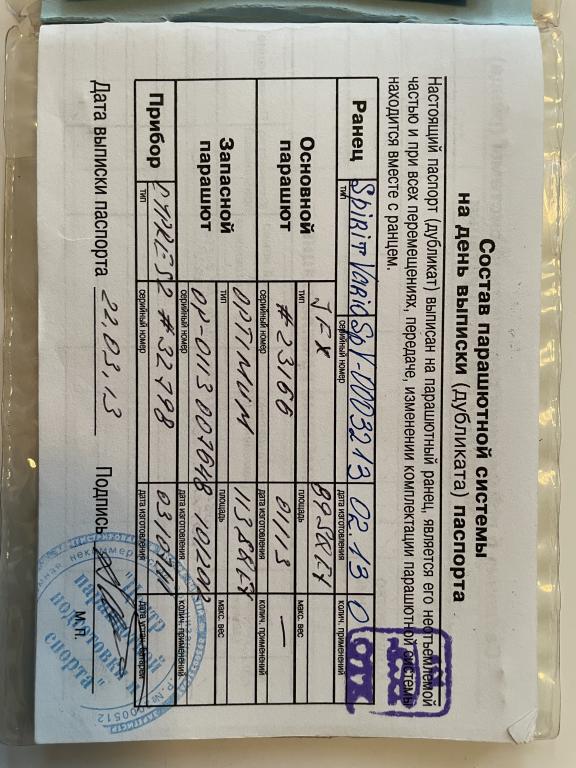 Состав парашютной системы
на день выписки (дубликата) паспорта
Настоящий паспорт (дубликат) выписан на парашютный ранец, является его неотъемлемой
частью и при всех перемещениях, передаче, изменении комплектации парашютной системы
находится вместе с ранцем.
Ранец Spirit Vario SpV-0003213 02.13 0
тип серийный номер дата изготовления колич. применений
Основной парашют JFX 89SRFT
тип площадь макс. вес
#23166 01/13 —
серийный номер дата изготовления колич. применений
Запасной парашют OPTIMUM 113SRFT
тип площадь макс. вес
OP-0113 007648
серийный номер дата изготовления колич. применений
Прибор CYPRES2 #32798
тип серийный номер дата изготовления
Дата выписки паспорта 22.03.13 Подпись
М.П.
ОТК
"Центр
парашютной
подготовки и
спорта"
000512